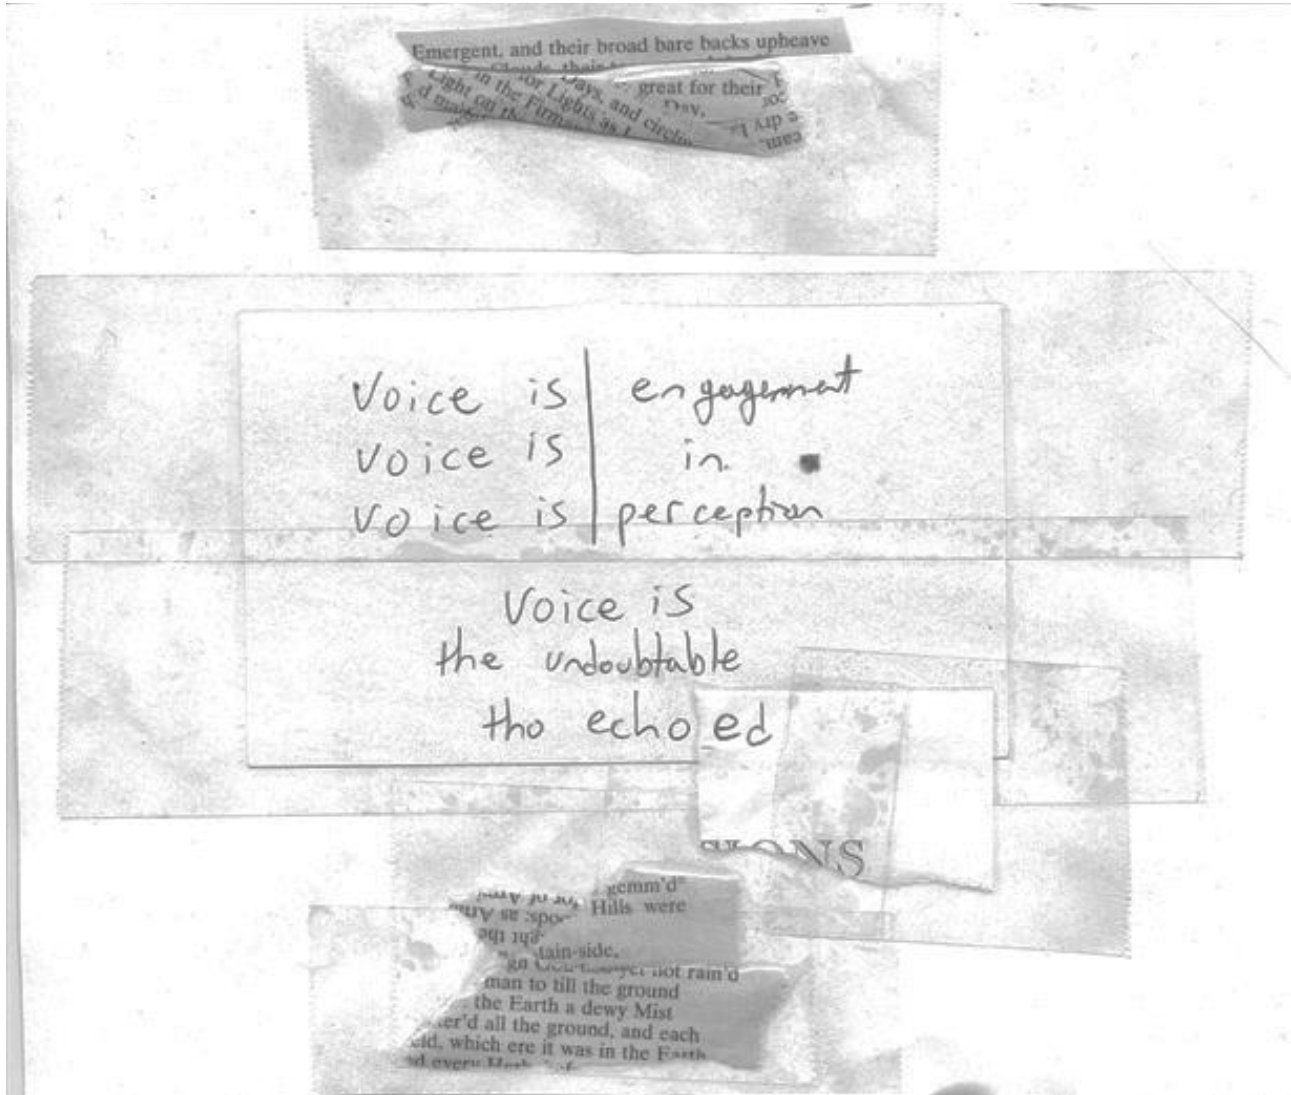 Emergent, and their broad bare backs upheave
great for their
Days, and circlin
for Lights as
in the Firma
Light on the
Day,
a dry
voice is | engagement
voice is | in
voice is | perception
voice is
the undoubtable
tho echoed
SIONS
gemm'd
for of
Hills were
as
the
tain-side.
yet not rain'd
man to till the ground
the Earth a dewy Mist
er'd all the ground, and each
eld, which ere it was in the Earth
every